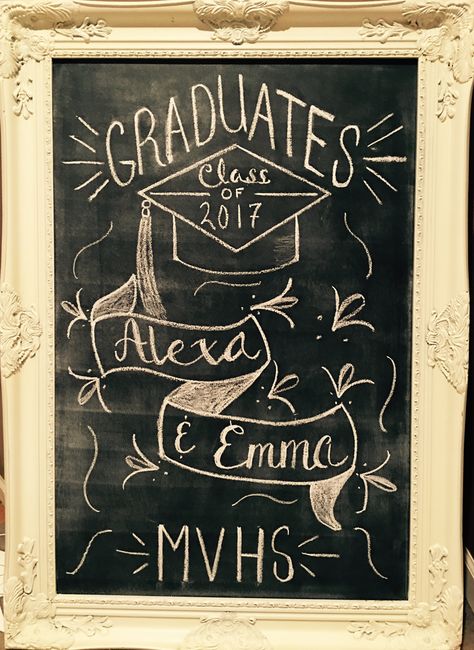 GRADUATES
Class
OF
2017
Alexa
& Emma
MVHS